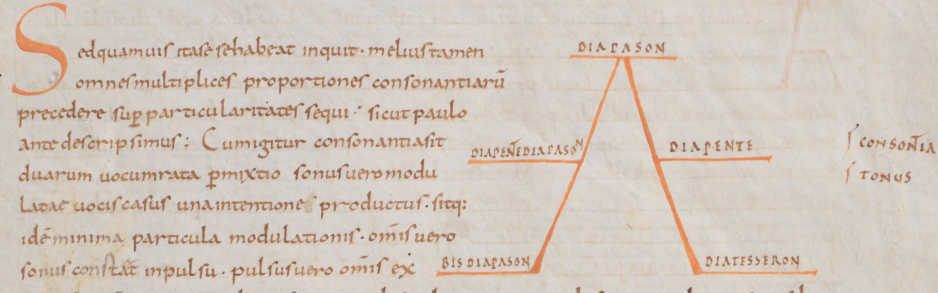 Sedquamuis itasesehabeat inquit · meliustamen
omnesmultiplices proportiones consonantiarū
precedere sup̱particularitates sequi · sicut paulo
antedescripsimus ; Cumigitur consonantiasit
duarum uocumrata p̱mixtio sonusueromodu
latae uociscasus unaintentione productus · sitq:
idē minima particula modulationis · om̄isuero
sonus constat inpulsu · pulsusuero om̄is ex
DIAPASON
DIAPEN̄EDIAPASON
DIAPENTE
BISDIAPASON
DIATESSERON
ſ CONSON̄IA
ſ TONUS